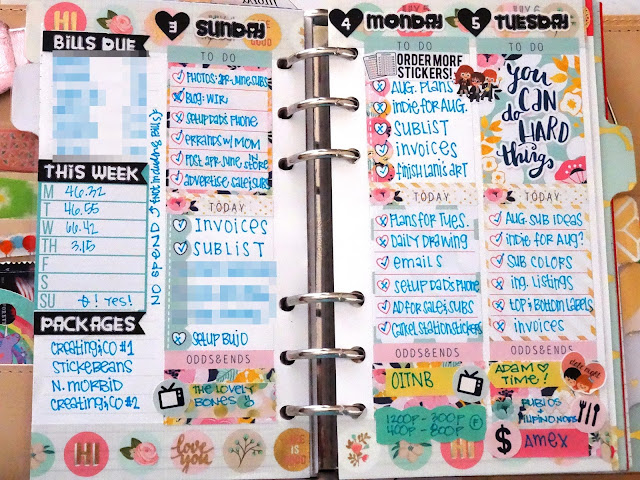 HI
BILLS DUE
THIS WEEK
M 46.32
T 46.55
W 66.42
TH 3.15
F
S
SU ! Yes!
NO SPEND (not including bills)
PACKAGES
Creating&Co #1
Stickbeans
N. Morbid
Creating&Co #2
HI
love you
3 SUNDAY
TO DO
Photos: Apr-June Subs
Blog: WIR
Setup Dad's Phone
Errands w/ Mom
Post Apr-June in store
Advertise sale & subs
TODAY
Invoices
Sublist
Setup BUJO
ODDS&ENDS
The Lovely Bones
4 MONDAY
TO DO
ORDER MORE
STICKERS!
Aug. Plans
Indie for Aug.
Sublist
Invoices
Finish Lani's Art
TODAY
Plans for Tues.
Daily Drawing
Emails
Setup Dad's Phone
Ad for Sale & Subs
Cancel Station Stickers
ODDS&ENDS
OITNB
1200P - 300P
400P - 800P
HI
5 TUESDAY
TO DO
you
CAN
do
HARD
things
TODAY
Aug. Sub Ideas
Indie for Aug?
Sub Colors
Ing. Listings
Top & Bottom Labels
Invoices
ODDS&ENDS
Adam
Time!
date night
Rubios
+
$ Amex